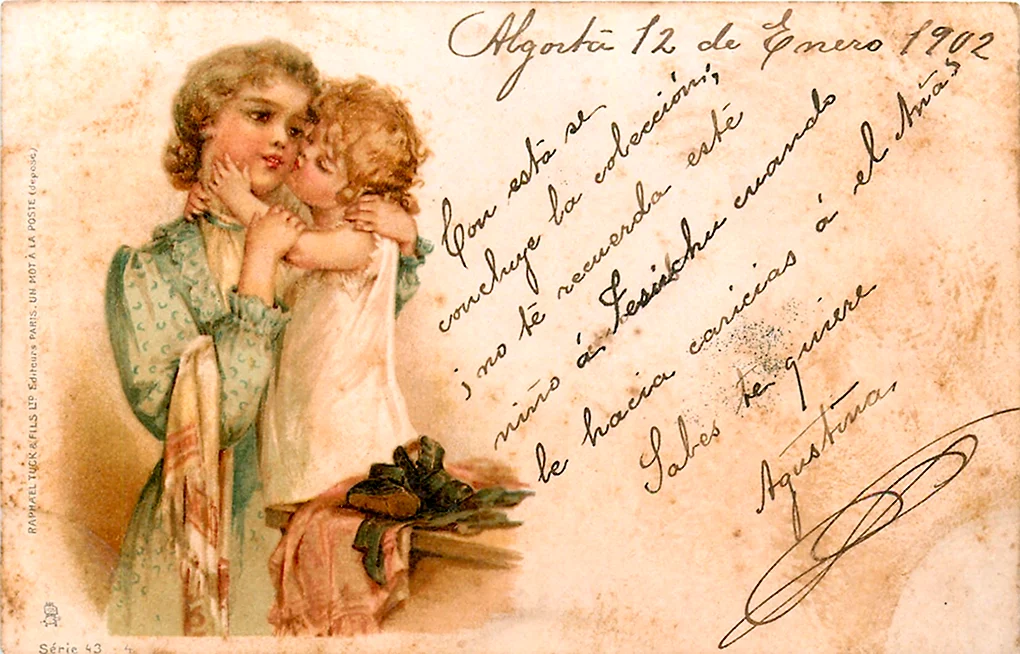 Algorta 12 de Enero 1902
Con esta se
concluye la colección;
¡no te recuerda esté
niño á Jesuchu cuando
le hacia caricias á el Ama?
Sabes te quiere
Agustina.
RAPHAEL TUCK & FILS LTD Editeurs PARIS. UN MOT À LA POSTE (déposé)
Série 43 - 4